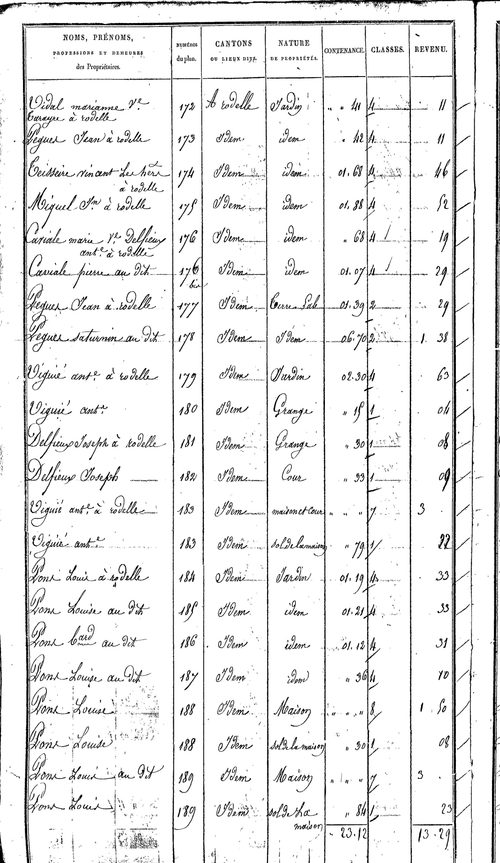 NOMS, PRÉNOMS, PROFESSIONS ET DEMEURES des Propriétaires. NUMÉROS du plan. CANTONS OU LIEUX DITS. NATURE DE PROPRIÉTÉS. CONTENANCE. CLASSES. REVENU.
Vidal marianne Ve 172 A rodelle Jardin " " 41 4 11
à rodelle
Pegues Jean à rodelle 173 Idem idem " 42 4 11
Teisseire vincent Les hers 174 Idem idem 01.68 4 46
à rodelle
Miquel Jn à rodelle 175 Idem idem 01.88 4 52
Caviale marie Ve Delfieux 176 Idem idem " 68 4 19
ante à rodelle
Caviale pierre au dit 176 bis Idem idem 01.07 4 29
Pegues Jean à rodelle 177 Idem Terre Lab 01.39 2 29
Pegues saturnin au dit 178 Idem Idem 06.70 2 1 38
Viguié ante à rodelle 179 Idem Jardin 02.30 4 63
Viguié ante 180 Idem Grange " 15 1 04
Delfieux Joseph à rodelle 181 Idem Grange " 30 1 08
Delfieux Joseph 182 Idem Cour " 33 1 09
Viguié ante à rodelle 183 Idem maison et cour " " " 7 3
Viguié ante 183 Idem sol de la maison " 79 1 22
Pons Louis à rodelle 184 Idem Jardin 01.19 4 33
Pons Louise au dit 185 Idem idem 01.21 4 33
Pons Bard au dit 186 Idem idem 01.12 4 31
Pons Louise au dit 187 Idem idem " 36 4 10
Pons Louise 188 Idem Maison " " " 8 1 50
Pons Louise 188 Idem sol de la maison " 30 1 08
Pons Louis au dit 189 Idem Maison " " " 7 3
Pons Louis 189 Idem sol de la " 84 1 23
maison
23.12 13.29